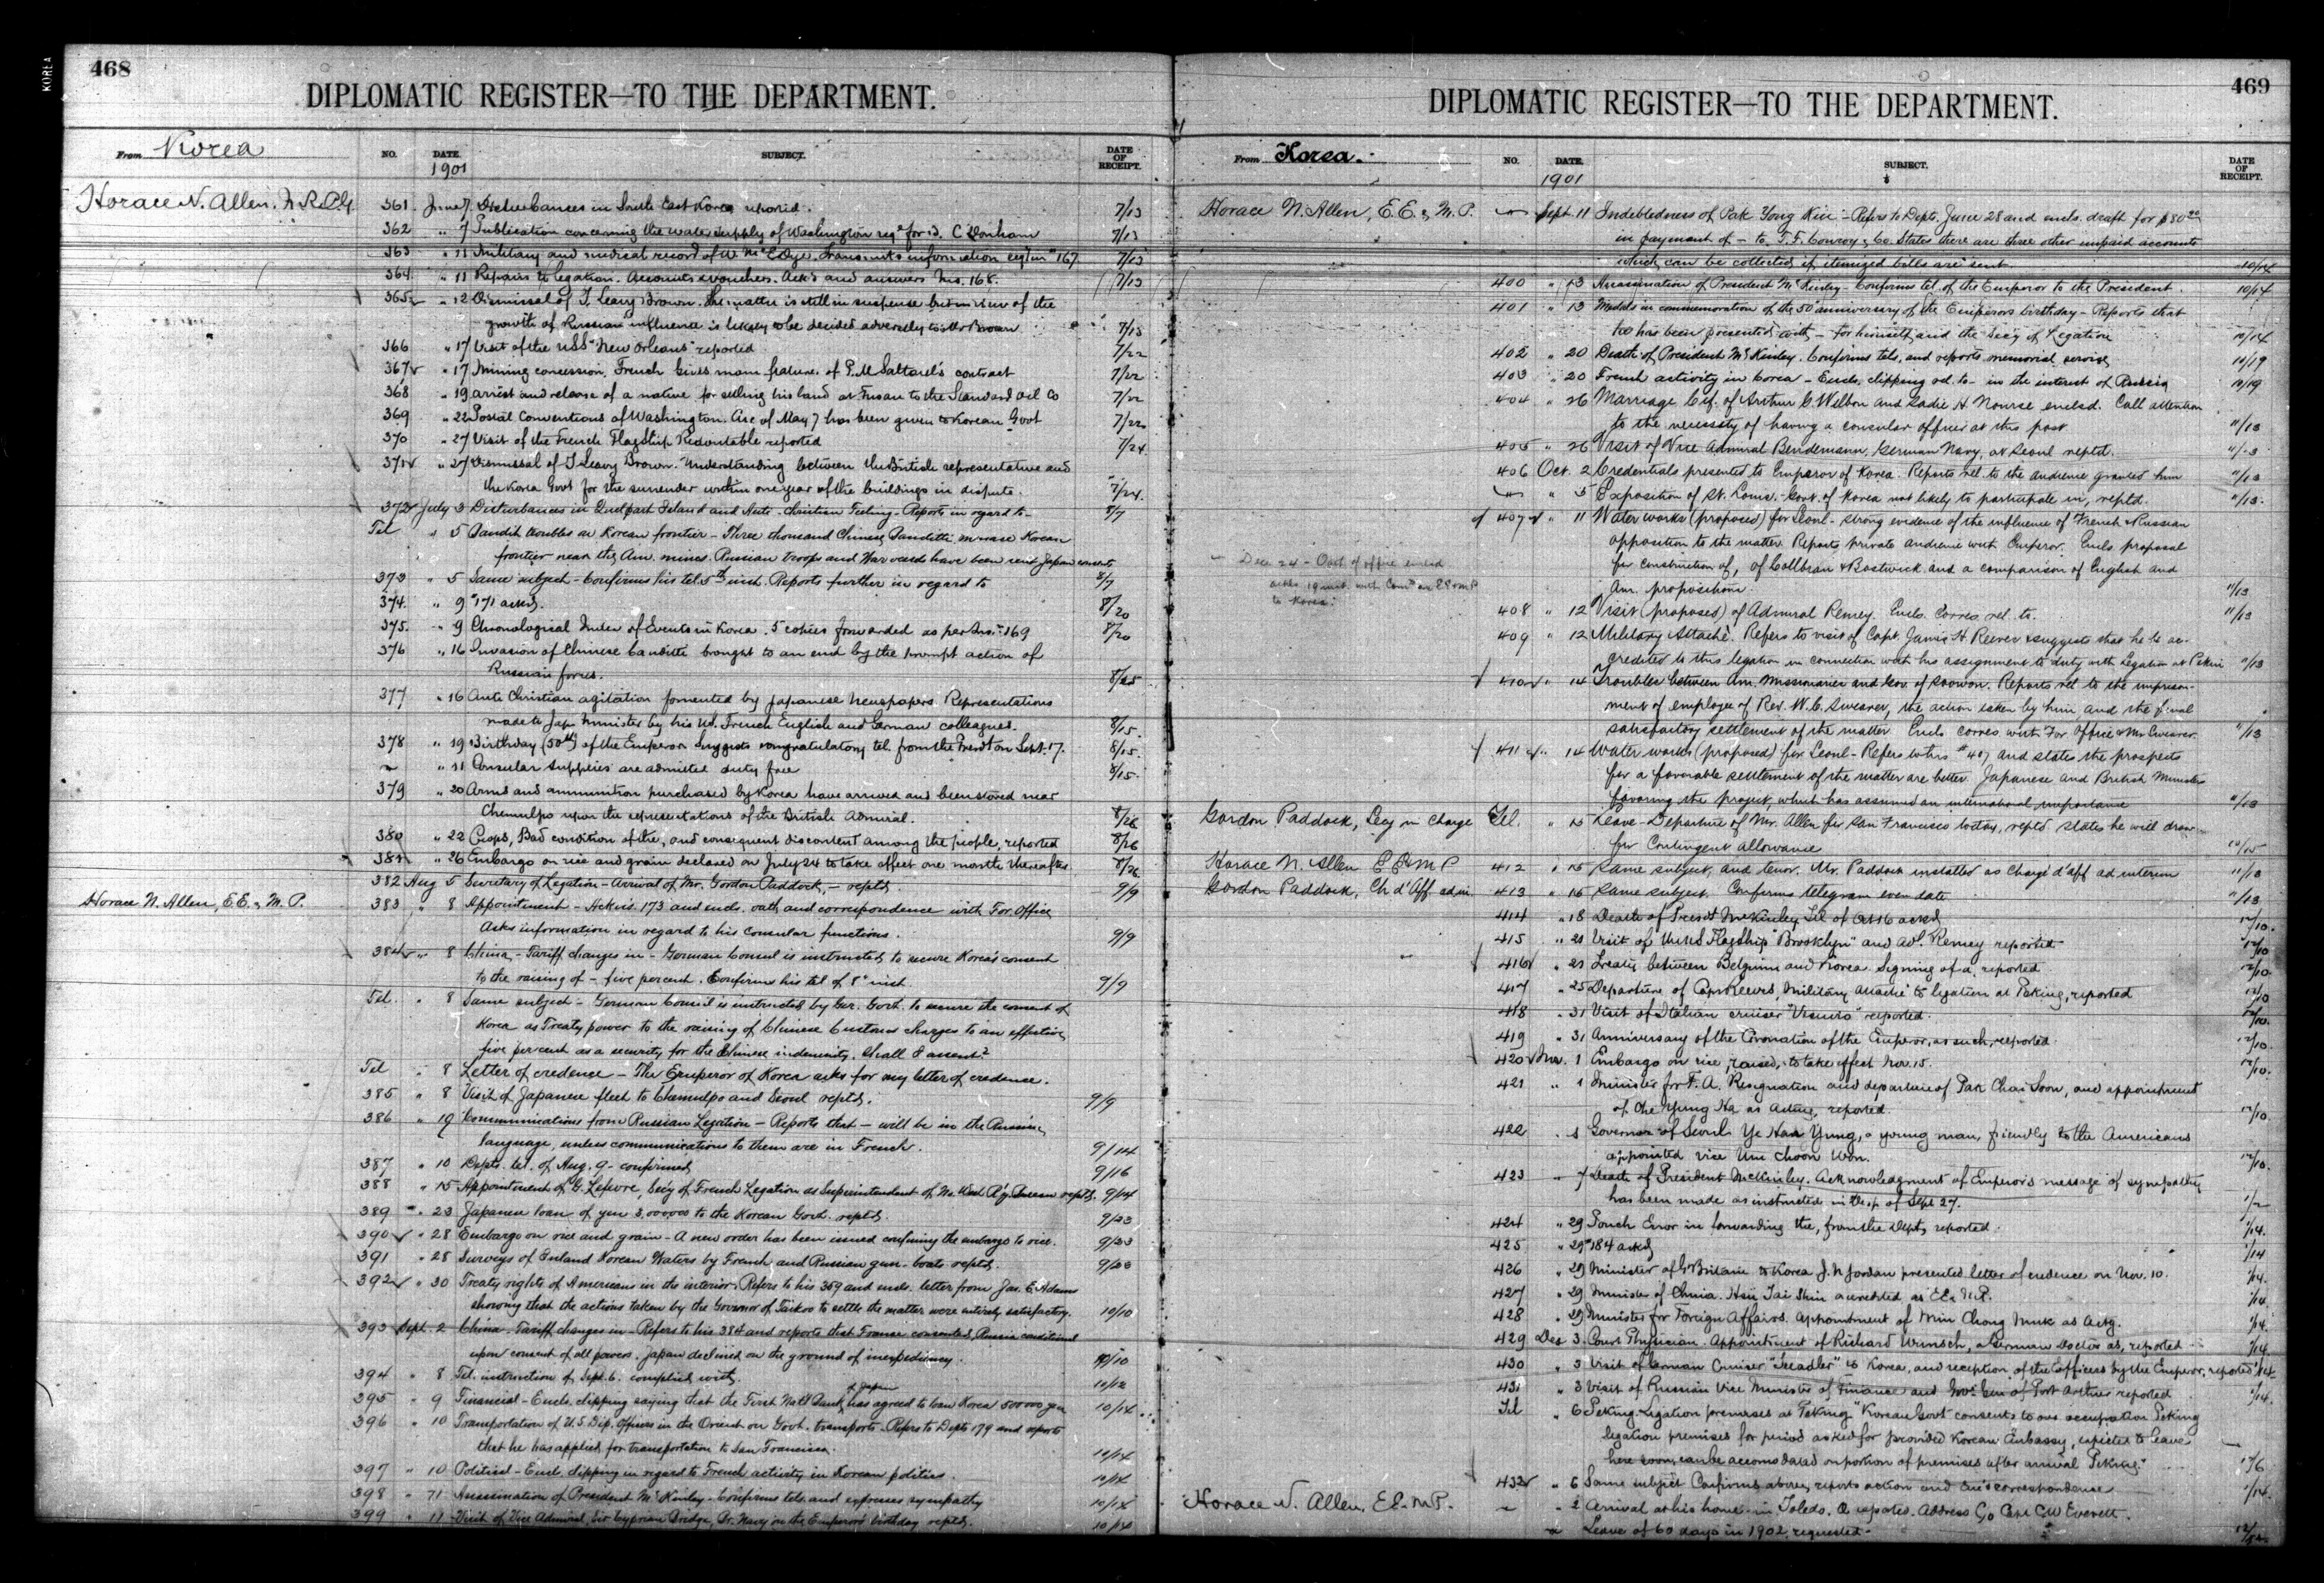 KOREA
468
DIPLOMATIC REGISTER—TO THE DEPARTMENT.
From Korea
NO. DATE. SUBJECT. DATE OF RECEIPT.
1901
Horace N. Allen, M.R.&C.G. 361 June 7 Disturbances in South East Korea reported. 7/13
362 " 7 Publication concerning the water supply of Washington reqd for D. C. Donham 7/13
363 " 11 Military and medical record of W. McE. Dye. Transmits information 167. 7/13
364 " 11 Repairs to legation. Accounts & vouchers. Ack's and answers No. 168. 7/13
365 " 12 Dismissal of J. Leavy Brown. The matter is still in suspense but in view of the
growth of Russian influence is likely to be decided adversely to Mr Brown 7/13
366 " 17 Visit of the USS "New Orleans" reported 7/22
367 " 17 Mining concession, French. Gives main features of P. M. Saltarel's contract 7/22
368 " 19 Arrest and release of a native for selling his land at Fusan to the Standard Oil Co 7/22
369 " 22 Postal Conventions of Washington. Acc of May 7 has been given to Korean Govt 7/22
370 " 27 Visit of the French Flagship Redoutable reported 7/24
371 " 27 Dismissal of J. Leavy Brown. Understanding between the British representative and
the Korea Govt for the surrender within one year of the buildings in dispute. 7/24
372 July 3 Disturbances in Quelpart Island and Anti-Christian Feeling - Reports in regard to - 8/7
Tel " 5 Bandit troubles on Korean frontier - Three thousand Chinese Banditti menace Korean
frontier near the Am. mines. Russian troops and War vessels have been sent Japan consents
373 " 5 Same subject - Confirms his tel. 5th inst. Reports further in regard to 8/7
374. " 9 #171 ackd. 8/20
375. " 9 Chronological Index of Events in Korea. 5 copies forwarded as per Ins. 169 8/20
376 " 16 Invasion of Chinese banditti brought to an end by the prompt action of
Russian forces. 8/25
377 " 16 Anti Christian agitation fomented by Japanese Newspapers. Representations
made to Jap. Minister by his US, French English and German colleagues. 8/15.
378 " 19 Birthday (50th) of the Emperor. Suggests congratulatory tel. from the Presdt on Sept. 17. 8/15.
" 11 Consular supplies are admitted duty free 8/15.
379 " 20 Arms and ammunition purchased by Korea have arrived and been stored near
Chemulpo upon the representations of the British Admiral. 8/26
380 " 22 Crops, Bad condition of the, and consequent discontent among the people, reported 8/26
381 " 26 Embargo on rice and grain declared on July 24 to take effect one month thereafter. 8/26
382 Aug 5 Secretary of Legation - Arrival of Mr. Gordon Paddock, - reptd. 9/9
Horace N. Allen, E.E. & M.P. 383 " 8 Appointment - Acks ins. 173 and encls. oath, and correspondence with For. Office
Asks information in regard to his consular functions. 9/9
384 " 8 China - Tariff changes in - German Consul is instructed to secure Korea's consent
to the raising of - five percent. Confirms his tel of 8" inst. 9/9
Tel. " 8 Same subject - German Consul is instructed by Ger. Govt. to secure the consent of
Korea as Treaty power to the raising of Chinese Customs charges to an effective
five per cent as a security for the Chinese indemnity. Shall I assent?
Tel " 8 Letter of credence - The Emperor of Korea asks for my letter of credence.
385 " 8 Visit of Japanese fleet to Chemulpo and Seoul reptd. 9/9
386 " 19 Communications from Russian Legation - Reports that - will be in the Russian
language, unless communications to them are in French. 9/14
387 " 10 Depts. tel. of Aug. 9 - confirmed 9/16
388 " 15 Appointment of G. Lefevre, Secy of French Legation as Superintendent of No. West Ry. Bureau reptd. 9/14
389 " 23 Japanese loan of yen 3,000,000 to the Korean Govt. reptd. 9/23
390 " 28 Embargo on rice and grain - A new order has been issued confining the embargo to rice. 9/23
391 " 28 Surveys of Inland Korean Waters by French and Russian gun-boats reptd. 9/23
392 " 30 Treaty rights of Americans in the interior. Refers to his 359 and encls. letter from Jas. E. Adams
showing that the actions taken by the Governor of Taikoo to settle the matter were entirely satisfactory. 10/10
393 Sept. 2 China. Tariff changes in - Refers to his 384 and reports that France consented, Russia conditional
upon consent of all powers. Japan declined on the ground of inexpediency. 10/10
394 " 8 Tel. instruction of Sept. 6. complied with. 10/12
395 " 9 Financial - Encls. clipping saying that the First Nat'l Bank of Japan has agreed to loan Korea 500000 yen 10/14
396 " 10 Transportation of U.S. Dip. Officers in the Orient on Govt. transports - Refers to Depts 179 and reports
that he has applied for transportation to San Francisco. 10/14
397 " 10 Political - Encl. clipping in regard to French activity in Korean politics. 10/14
398 " 11 Assassination of President McKinley - Confirms tels. and expresses sympathy 10/14
399 " 11 Visit of Vice Admiral, Sir Cyprian Bridge, Br. Navy on the Emperor's birthday reptd. 10/14
469
DIPLOMATIC REGISTER—TO THE DEPARTMENT.
From Korea.
NO. DATE. SUBJECT. DATE OF RECEIPT.
1901
Horace N. Allen, E.E. & M.P. Sept. 11 Indebtedness of Pak Yong Kiu - Refers to Depts. June 28 and encls. draft for $80.00
in payment of - to J. F. Conroy & Co. States there are three other unpaid accounts
which can be collected if itemized bills are sent 10/14
400 " 13 Assassination of President McKinley - Confirms tel. of the Emperor to the President. 10/14
401 " 13 Medals in commemoration of the 50" anniversary of the Emperor's birthday - Reports that
he has been presented with - for himself and the Secy of Legation 10/14
402 " 20 Death of President McKinley. Confirms tels. and reports memorial service 10/19
403 " 20 French activity in Corea - Encls. clipping rel. to - in the interest of Russia 10/19
404 " 26 Marriage Ctf. of Arthur G. Welbon and Sadie H. Nourse enclsd. Call attention
to the necessity of having a consular officer at this post 11/13
405 " 26 Visit of Vice Admiral Bendemann, German Navy, at Seoul reptd. 11/13
406 Oct. 2 Credentials presented to Emperor of Korea. Reports rel. to the audience granted him 11/13
" 5 Exposition of St. Louis. - Govt. of Korea not likely to participate in, reptd. 11/13.
407 " 11 Water works (proposed) for Seoul - strong evidence of the influence of French & Russian
opposition to the matter. Reports private audience with Emperor. Encls. proposal
for construction of, of Collbran & Bostwick and a comparison of English and
Am. propositions. 11/13
Dec. 24 - Oath of office encld
acks 19 inst. with Comn as EE & MP
to Korea.
408 " 12 Visit (proposed) of Admiral Remey. Encls. Corres rel. to. 11/13
409 " 12 Military Attaché. Refers to visit of Capt. James H. Reeves & suggests that he be ac-
credited to this legation in connection with his assignment to duty with Legation at Pekin 11/13
410 " 14 Troubles between Am. Missionaries and Gov. of Soowon. Reports rel to the imprison-
ment of employee of Rev. W. C. Swearer, the action taken by him and the final
satisfactory settlement of the matter Encls corres with For Office & Mr Swearer. 11/13
411 " 14 Water works (proposed) for Seoul - Refers to his #407 and states the prospects
for a favorable settlement of the matter are better. Japanese and British Ministers
favoring the project, which has assumed an international importance 11/13
Gordon Paddock, Secy in Charge Tel. " 15 Leave - Departure of Mr. Allen for San Francisco today, reptd states he will draw
for Contingent allowance 10/15
Horace N. Allen E E & M P 412 " 15 Same subject, and tenor. Mr. Paddock installed as Chargé d'aff ad interim 11/13
Gordon Paddock, Ch d'Aff. ad in 413 " 16 Same subject. Confirms telegram even date 11/13
414 " 18 Death of Presdt McKinley Tel of Oct 16 ackd 12/10.
415 " 21 Visit of Flagship "Brooklyn" and Adl. Remey reported 12/10
416 " 21 Treaty between Belgium and Korea. Signing of a, reported 12/10.
417 " 25 Departure of Capt Reeves, Military attaché to legation at Peking, reported 12/10
418 " 31 Visit of Italian cruiser "Vesuvio" reported. 12/10.
419 " 31 Anniversary of the Coronation of the Emperor, as such, reported. 12/10.
420 Nov. 1 Embargo on rice, raised, to take effect Nov 15. 12/10.
421 " 1 Minister for F. A. Resignation and departure of Pak Chai Soon, and appointment
of Yung Ha as acting, reported. 12/10.
422 " 1 Governor of Seoul. Ye Han Yung, a young man, friendly to the Americans
appointed vice Um Choon Won. 12/10.
423 " 7 Death of President McKinley. Acknowledgment of Emperor's message of sympathy
has been made as instructed in Desp. of Sept 27. 1/2
424 " 29 Pouch Error in forwarding the, from the Dept, reported. 1/14.
425 " 29 #184 ackd 1/14
426 " 29 Minister of Gr Britain to Korea J. N Jordan presented letter of credence on Nov. 10. 1/14.
427 " 29 Minister of China. Hsu Tai Shin accredited as EE & M.P. 1/14.
428 " 29 Minister for Foreign Affairs. Appointment of Min Chong Muk as Actg. 1/14.
429 Dec 3. Court Physician. Appointment of Richard Wunsch, a German Doctor as, reported 1/14.
430 " 3 Visit of German Cruiser "Seeadler" to Korea, and reception of the officers by the Emperor, reported 1/14
431 " 3 Visit of Russian Vice Minister of Finance and Govr Gen of Port Arthur reported 1/14.
Tel " 6 Peking. Legation premises at Peking "Korean Govt consents to our occupation Peking
legation premises for period asked for provided Korean Embassy, expected to leave
here soon, can be accomodated on portion of premises after arrival Peking." 12/6
432 " 6 Same subject Confirms above, reports action and encls correspondence 1/14.
Horace N. Allen, E.E. & M.P. " 2 Arrival at his home in Toledo, O reported. Address c/o Capt C W Everett.
Leave of 60 days in 1902, requested -